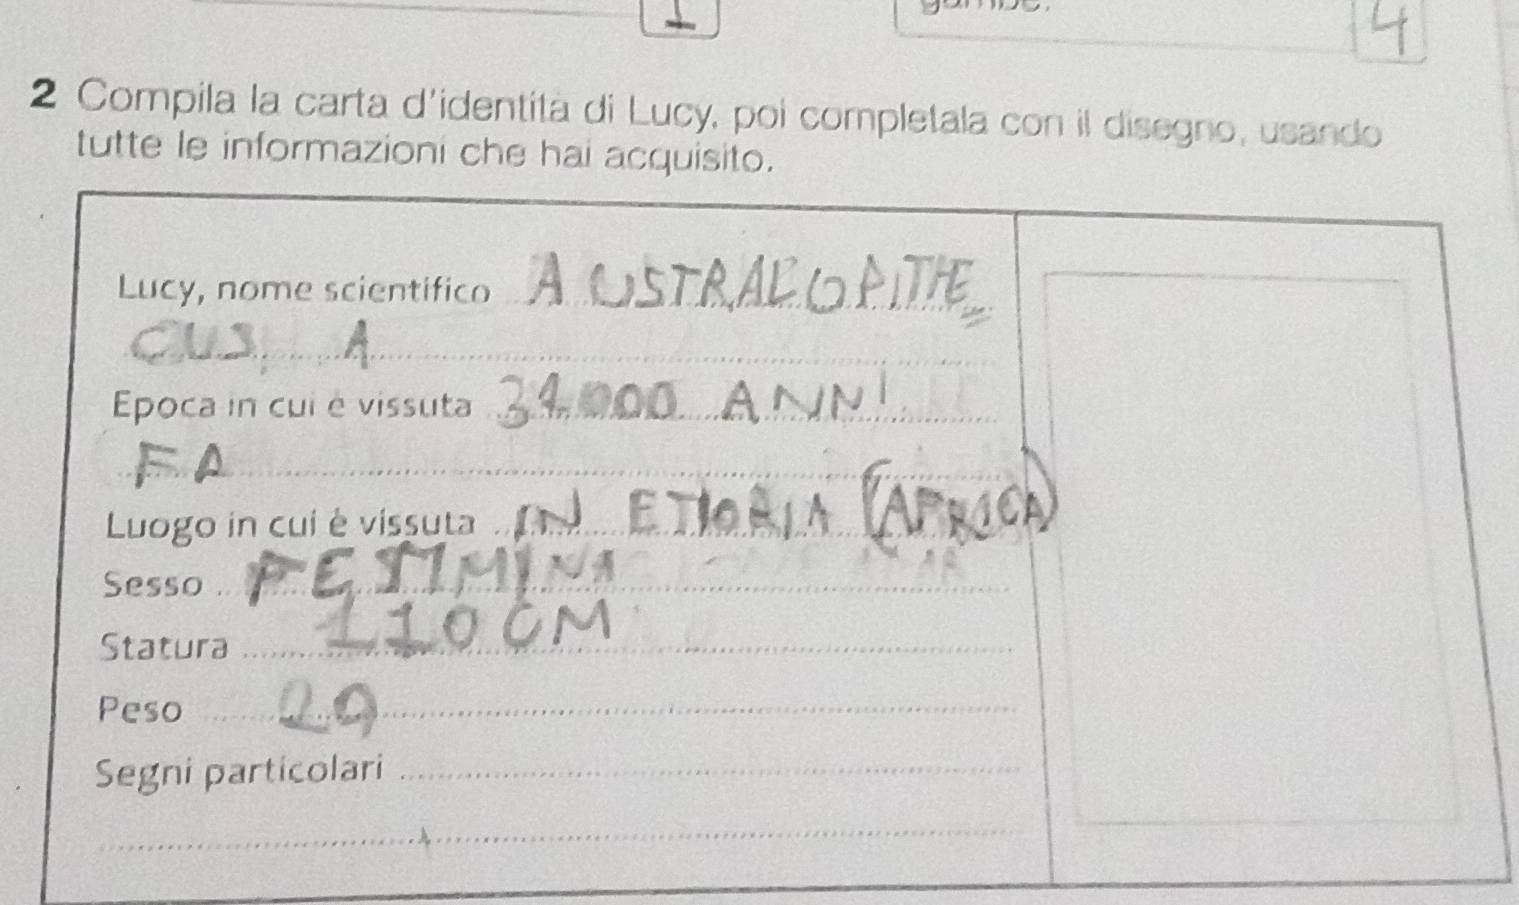 1
4
2 Compila la carta d'identità di Lucy, poi completala con il disegno, usando
tutte le informazioni che hai acquisito.
Lucy, nome scientifico AUSTRALOPITHE
CUS A
Epoca in cui è vissuta 34.000 ANNI
FA
Luogo in cui è vissuta IN ETIOPIA (AFRICA)
Sesso FEMMINA
Statura 110 CM
Peso 29
Segni particolari